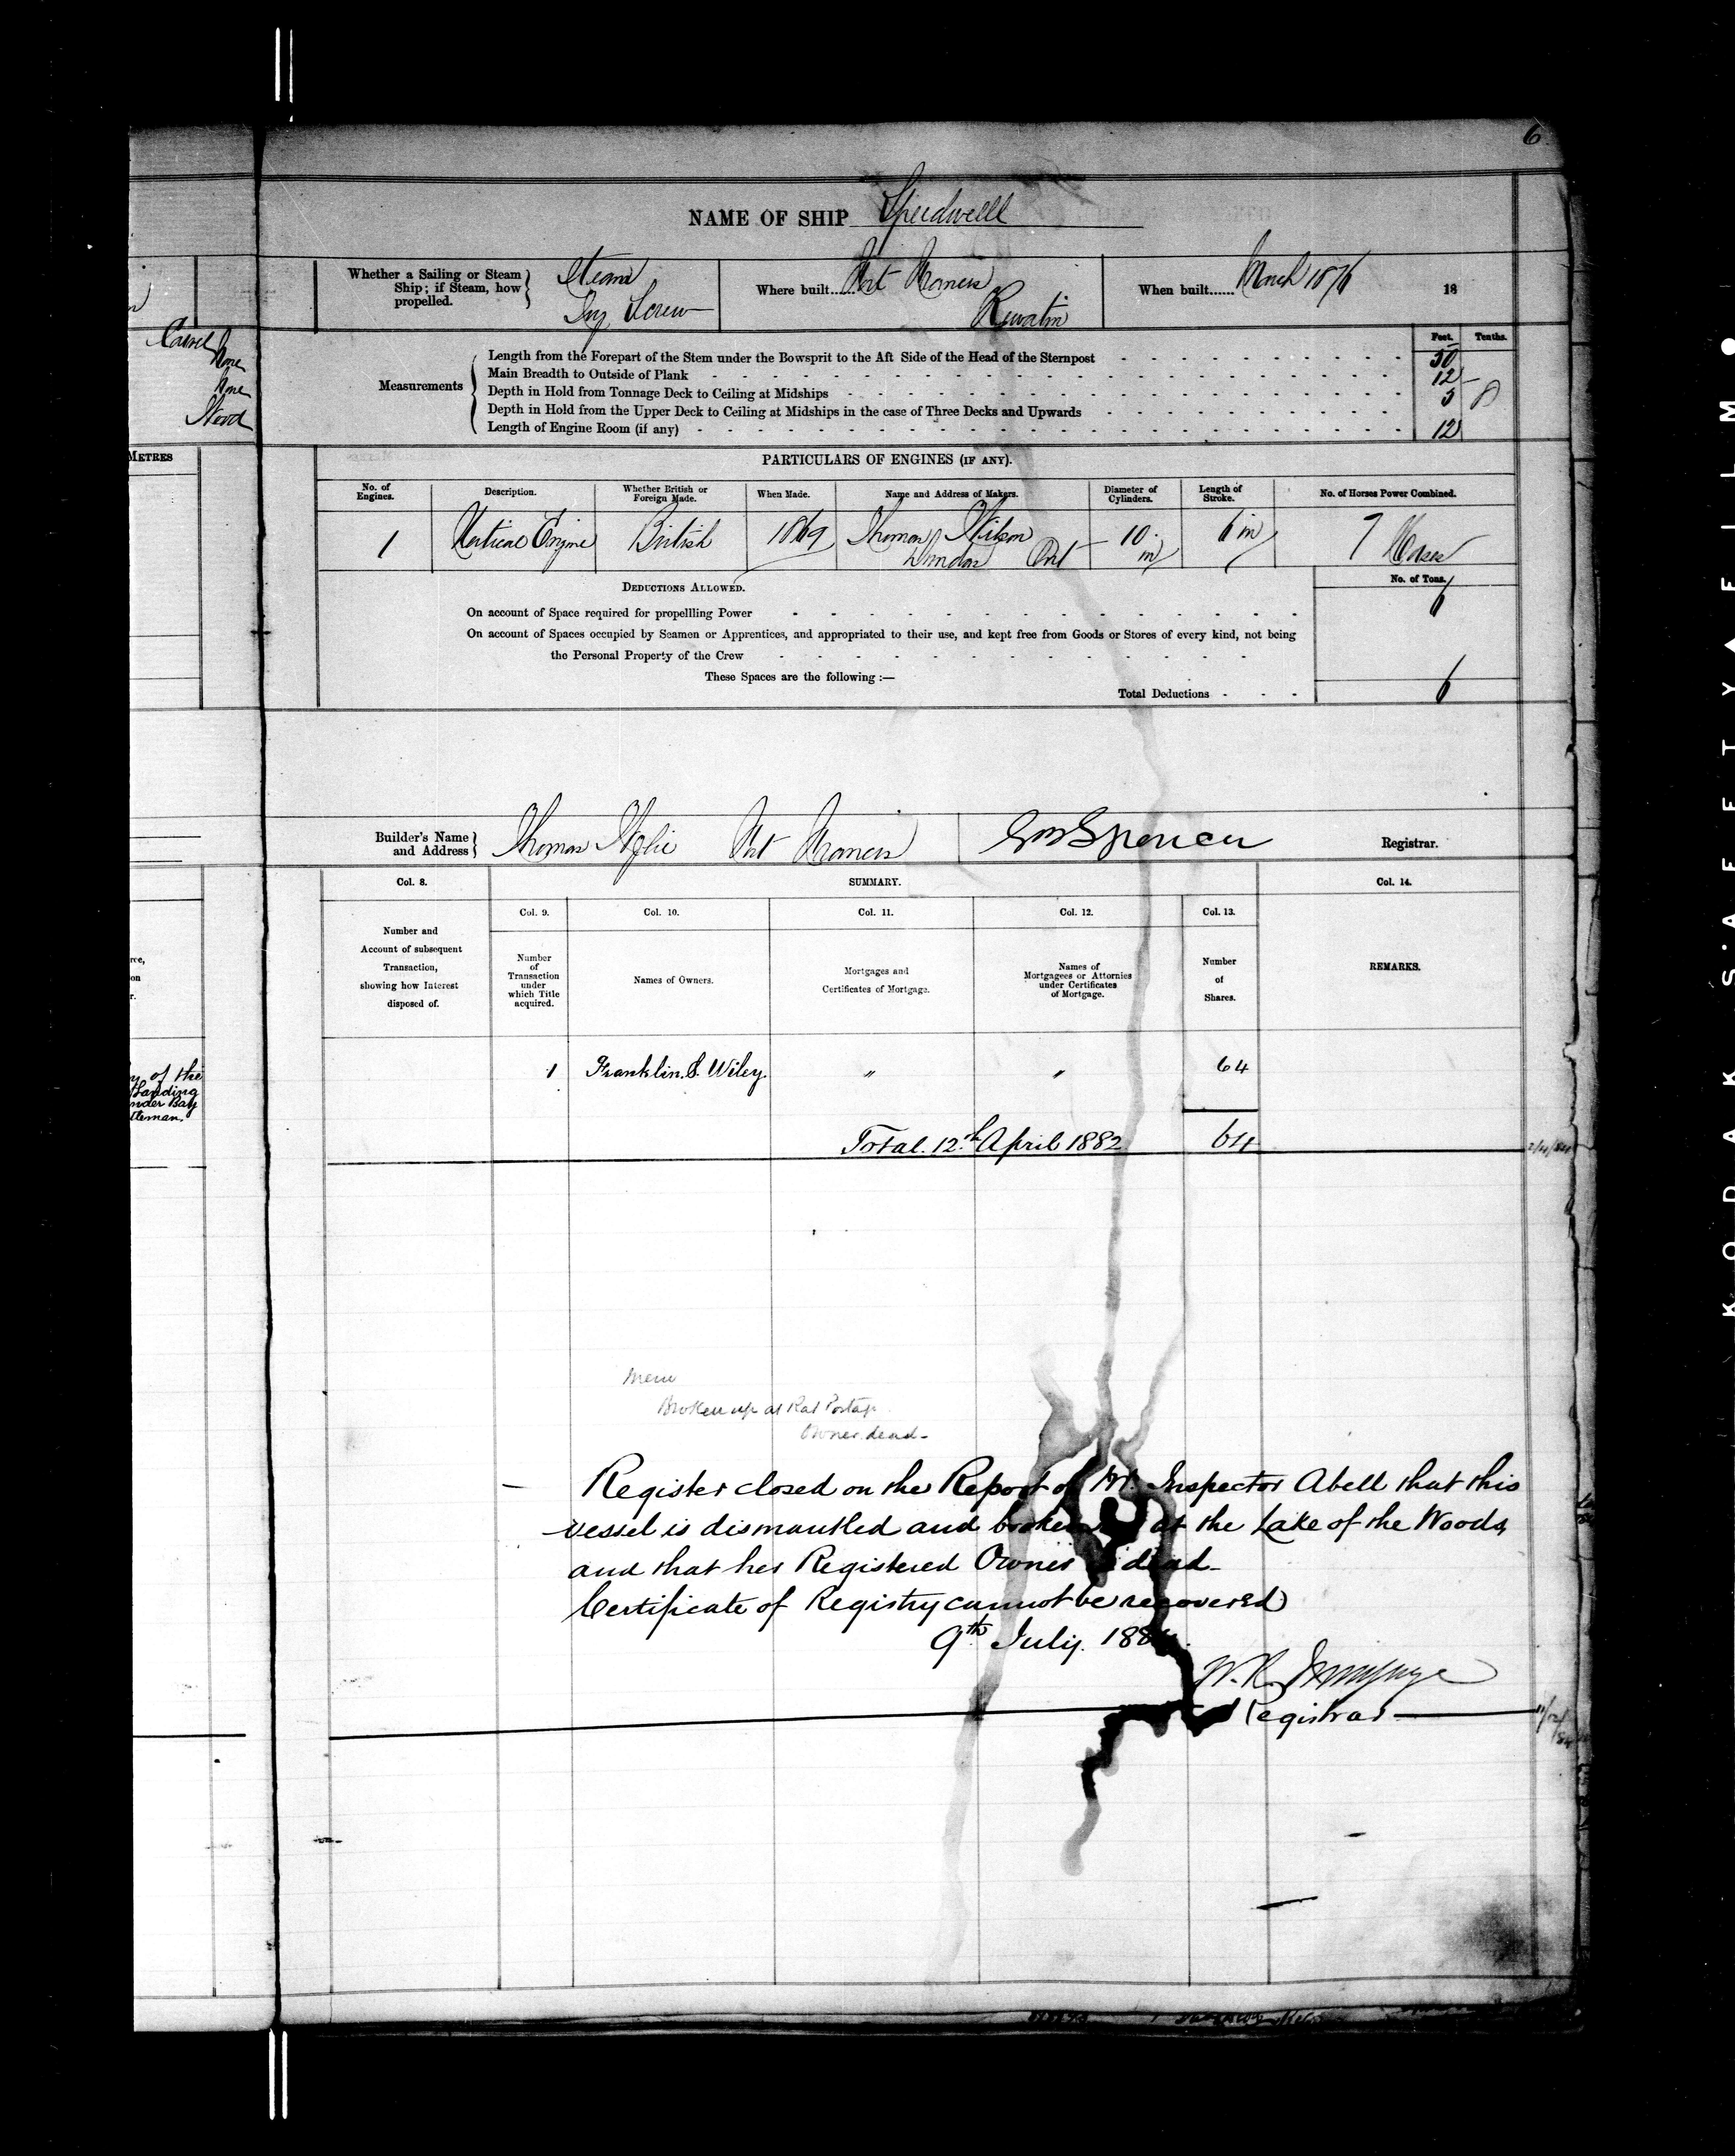 6
NAME OF SHIP Speedwell
Whether a Sailing or Steam Ship; if Steam, how propelled.
Steam
Screw
Where built...... Fort Francis
Kewatin
When built...... March 1876 18
Carvel
None
None
Wood
Feet. Tenths.
Measurements
Length from the Forepart of the Stem under the Bowsprit to the Aft Side of the Head of the Sternpost 50
Main Breadth to Outside of Plank 12 -
Depth in Hold from Tonnage Deck to Ceiling at Midships 5 8
Depth in Hold from the Upper Deck to Ceiling at Midships in the case of Three Decks and Upwards
Length of Engine Room (if any) 12
METRES
PARTICULARS OF ENGINES (IF ANY).
No. of Engines.
Description.
Whether British or Foreign Made.
When Made.
Name and Address of Makers.
Diameter of Cylinders.
Length of Stroke.
No. of Horses Power Combined.
1 Vertical Engine British 1869 Thomas Wilson
Dundas Ont
10 in
6 in
7 Horses
DEDUCTIONS ALLOWED.
No. of Tons.
On account of Space required for propellling Power 6
On account of Spaces occupied by Seamen or Apprentices, and appropriated to their use, and kept free from Goods or Stores of every kind, not being
the Personal Property of the Crew
These Spaces are the following :—
Total Deductions 6
Builder's Name and Address
Thomas Fort Francis
Spencer Registrar.
Col. 8. SUMMARY. Col. 14.
Col. 9. Col. 10. Col. 11. Col. 12. Col. 13.
Number and
Account of subsequent
Transaction,
showing how Interest
disposed of.
Number
of
Transaction
under
which Title
acquired.
Names of Owners.
Mortgages and
Certificates of Mortgage.
Names of
Mortgagees or Attornies
under Certificates
of Mortgage.
Number
of
Shares.
REMARKS.
of the
Landing
nder Bay
ttleman.
1 Franklin. S. Wiley. " " 64
Total. 12th April 1882 64
Broken up at Rat Portage
Owner dead -
Register closed on the Report of Mr. Inspector Abell that this
vessel is dismantled and broken at the Lake of the Woods
and that her Registered Owner is dead -
Certificate of Registry cannot be recovered
9th July. 188
Registrar
KODAK SAFETY FILM